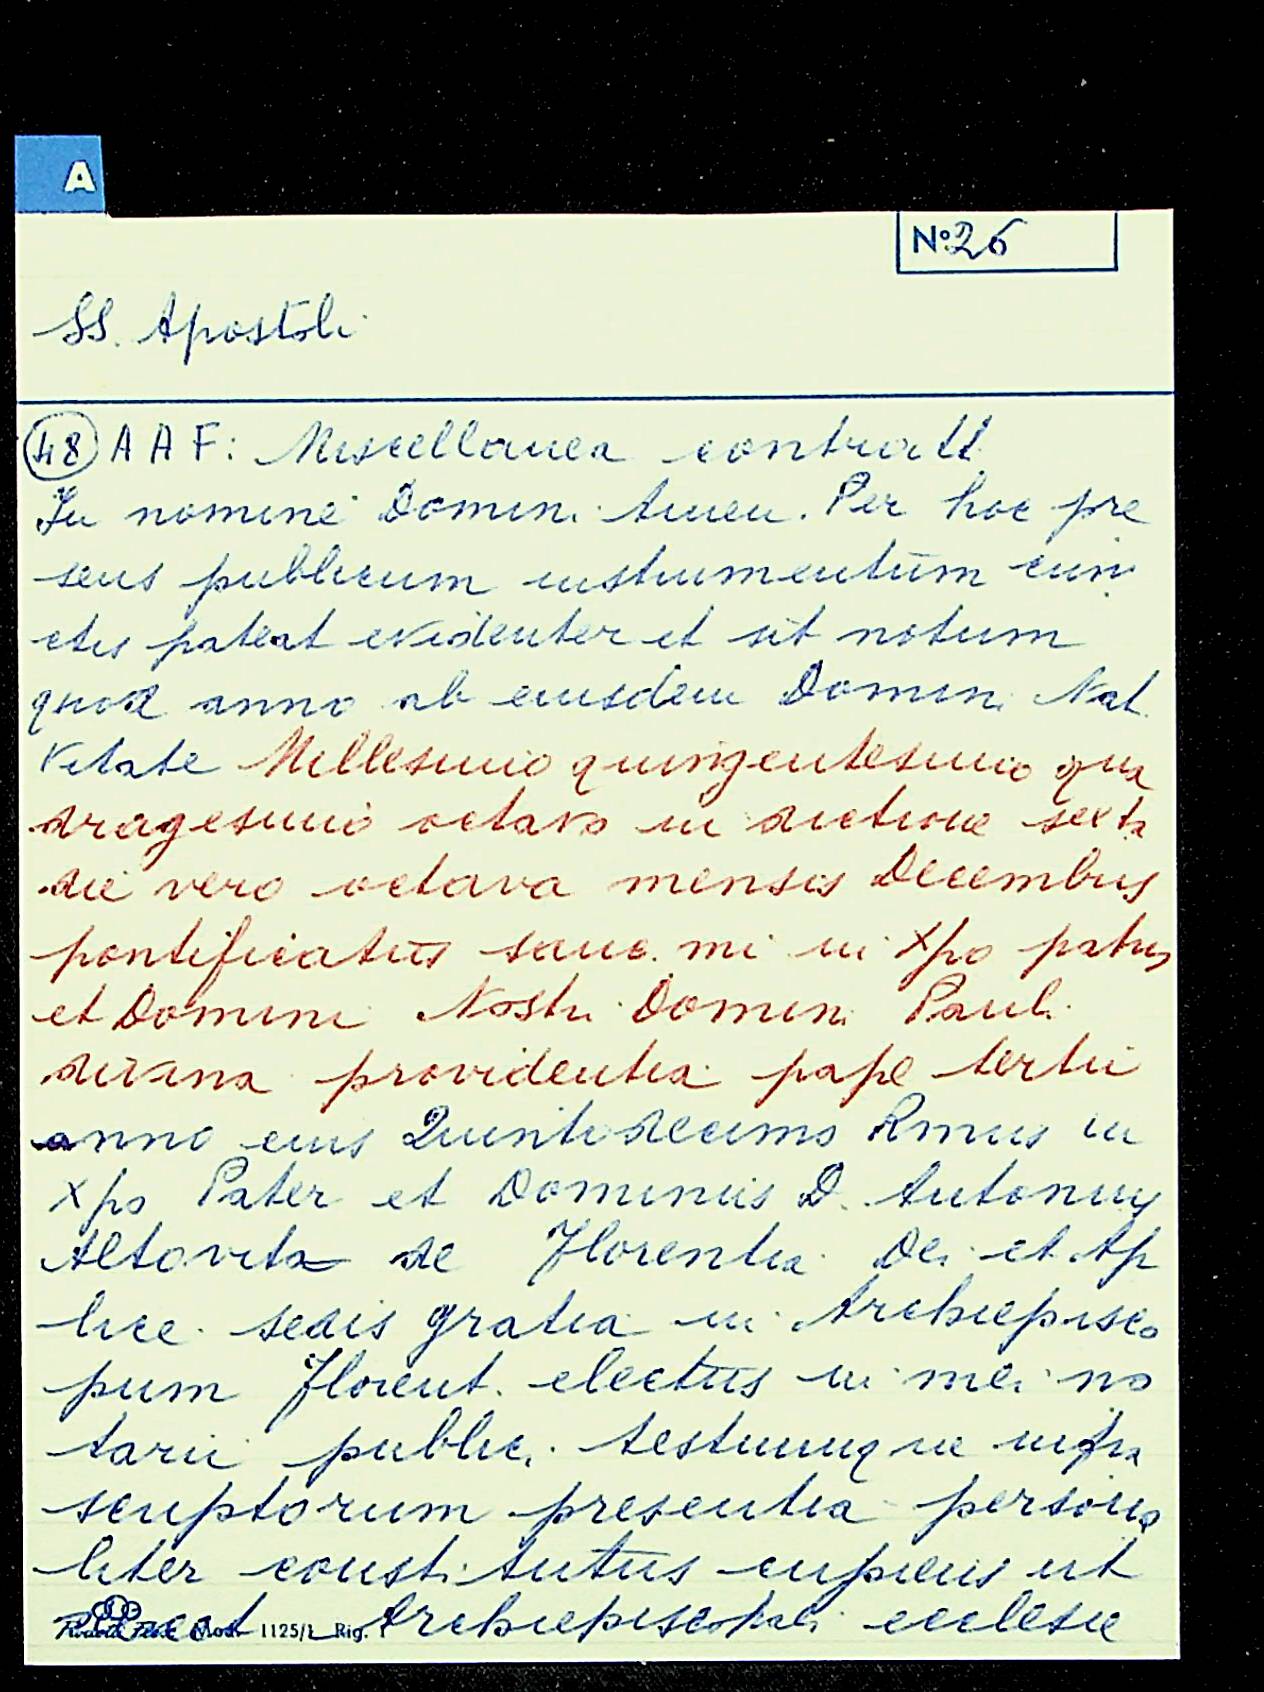 A
Nº 26
SS. Apostoli
48 A A F: Miscellanea contratt.
In nomine Domini Amen. Per hoc pre
sens publicum instrumentum cun
ctis pateat evidenter et sit notum
quod anno ab eiusdem Domini Nat
vitate Millesimo quingentesimo qua
dragesimo octavo in dictione sexta
die vero octava mensis Decembris
pontificatus sanc. mi in Xpo patris
et Domini Nostri Domini Pauli
divina providentia pape tertii
anno eius Quintodecimo Rmus in
Xpo Pater et Dominus D. Antonius
Altovita de Florentia Dei et Ap
lice sedis gratia in Archiepisco
pum Florent. electus in mei no
tarii public. testiumque infra
scriptorum presentia persona
liter constitutus cupiens ut
Archiepiscopali ecclesie
Mod. 1125/1 Rig. 1